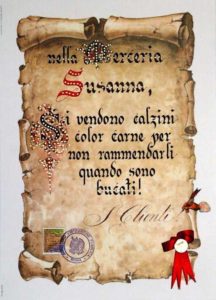 nella Merceria
Susanna,
Si vendono calzini
color carne per
non rammendarli
quando sono
bucati!
I Clienti